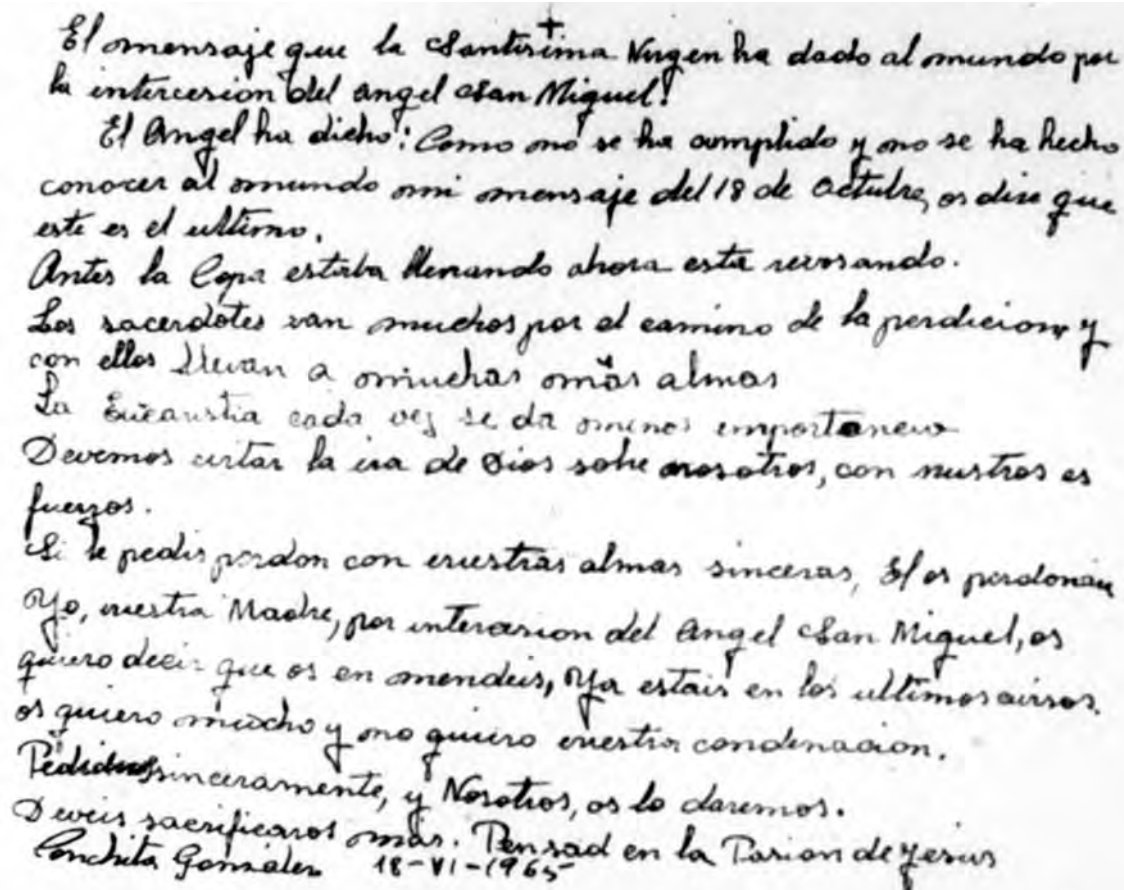 +
El mensaje que la Santisima Virgen ha dado al mundo por
la intercesion del angel San Miguel!
El Angel ha dicho: Como no se ha cumplido y no se ha hecho
conocer al mundo mi mensaje del 18 de Octubre, os dire que
este es el ultimo.
Antes la Copa estaba llenando ahora esta revosando.
Los sacerdotes van muchos por el camino de la perdicion y
con ellos llevan a muchas más almas
La Eucaristia cada vez se da menos importancia
Devemos evitar la ira de Dios sobre nosotros, con nuestros es
fuerzos.
Si le pedis perdon con vuestras almas sinceras, El os perdonara
Yo, vuestra Madre, por intercesion del Angel San Miguel, os
quiero decir que os en mendeis, Ya estais en los ultimos avisos.
os quiero mucho y no quiero vuestra condenacion.
Pedidnos sinceramente, y Nosotros, os lo daremos.
Deveis sacrificaros mas. Pensad en la Pasion de Jesus
Conchita Gonzalez 18-VI-1965